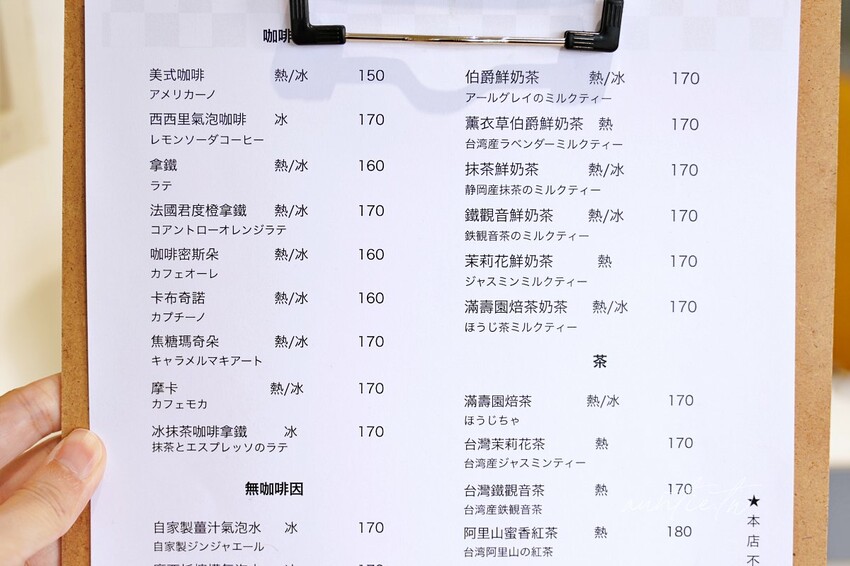 咖啡
美式咖啡 熱/冰 150
アメリカーノ
西西里氣泡咖啡 冰 170
レモンソーダコーヒー
拿鐵 熱/冰 160
ラテ
法國君度橙拿鐵 熱/冰 170
コアントローオレンジラテ
咖啡密斯朵 熱/冰 160
カフェオーレ
卡布奇諾 熱/冰 160
カプチーノ
焦糖瑪奇朵 熱/冰 170
キャラメルマキアート
摩卡 熱/冰 170
カフェモカ
冰抹茶咖啡拿鐵 冰 170
抹茶とエスプレッソのラテ
無咖啡因
自家製薑汁氣泡水 冰 170
自家製ジンジャエール
伯爵鮮奶茶 熱/冰 170
アールグレイのミルクティー
薰衣草伯爵鮮奶茶 熱 170
台湾産ラベンダーミルクティー
抹茶鮮奶茶 熱/冰 170
静岡産抹茶のミルクティー
鐵觀音鮮奶茶 熱/冰 170
鉄観音茶のミルクティー
茉莉花鮮奶茶 熱 170
ジャスミンミルクティー
滿壽園焙茶奶茶 熱/冰 170
ほうじ茶ミルクティー
茶
滿壽園焙茶 熱/冰 170
ほうじちゃ
台灣茉莉花茶 熱 170
台湾産ジャスミンティー
台灣鐵觀音茶 熱 170
台湾産鉄観音茶
阿里山蜜香紅茶 熱 180
台湾阿里山の紅茶
★本店不